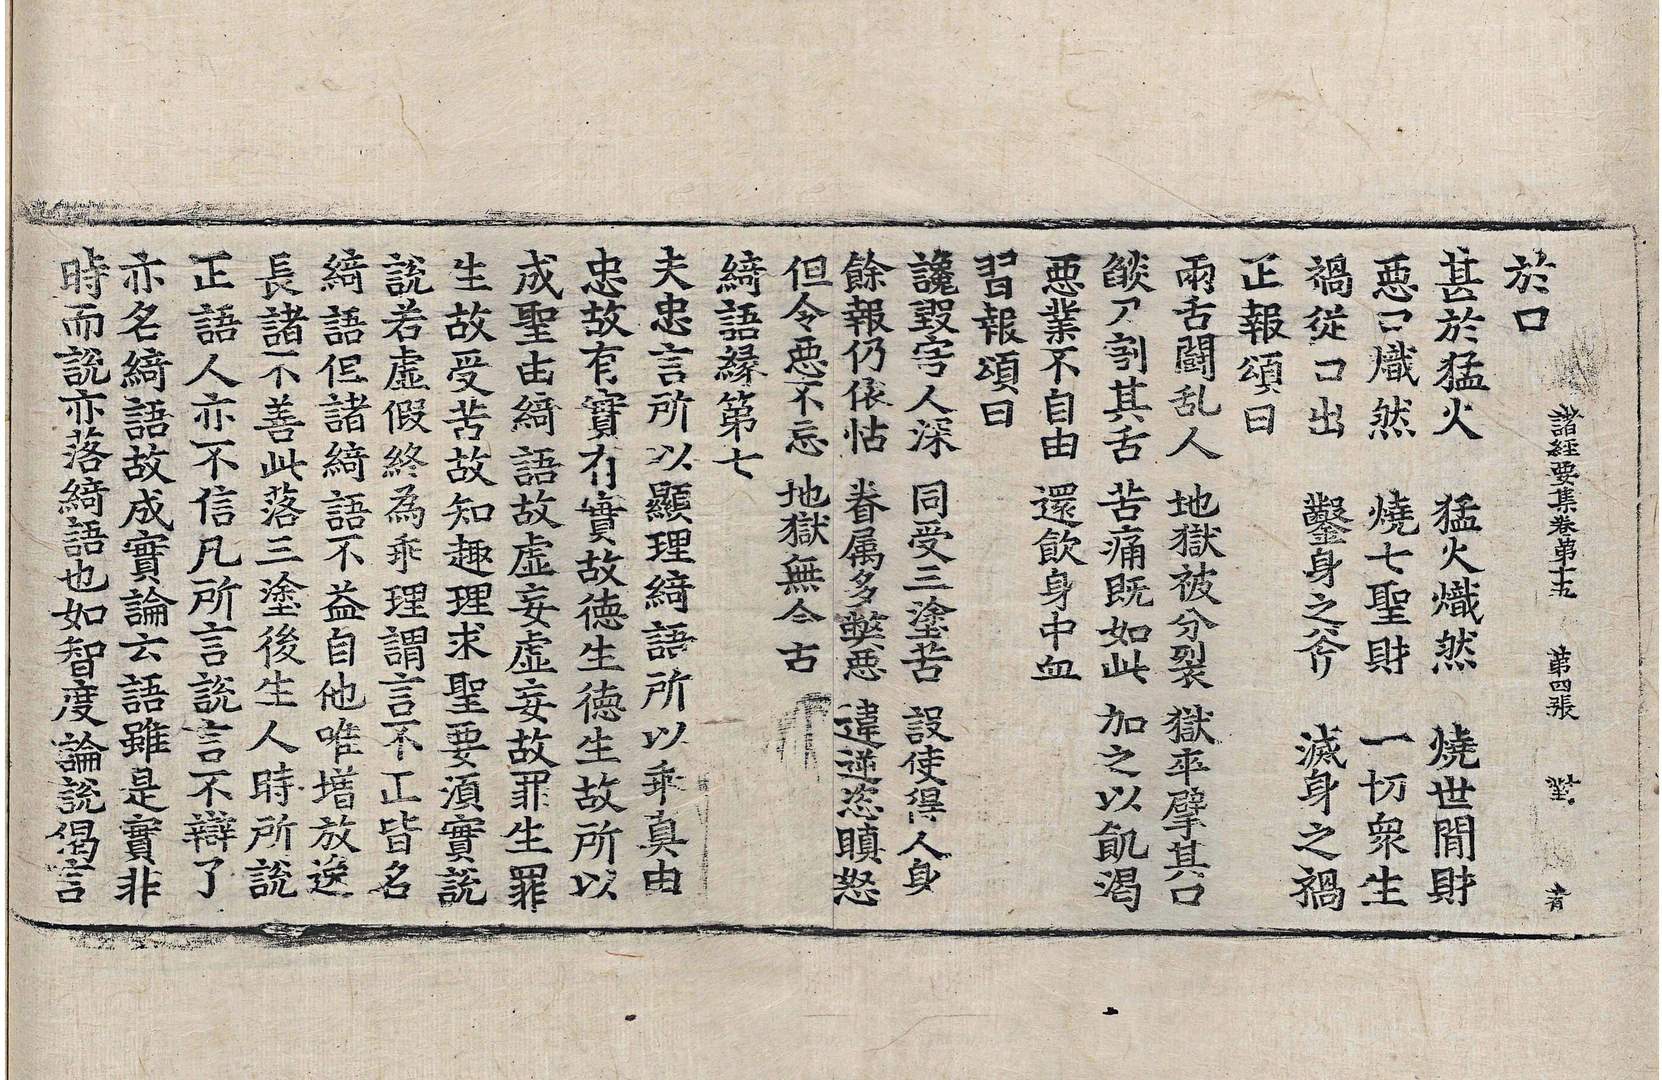 諸經要集卷第十五　第四張
於口
甚於猛火　猛火熾然　燒世間財
惡口熾然　燒七聖財　一切衆生
禍從口出　鑿身之斧　滅身之禍
正報頌曰
兩舌鬪乱人　地獄被分裂　獄卒擘其口
燄刀割其舌　苦痛既如此　加之以飢渴
惡業不自由　還飲身中血
習報頌曰
讒毀害人深　同受三塗苦　設使得人身
餘報仍依怙　眷属多獘惡　違逆恣瞋怒
但令惡不忘　地獄無今古
綺語縁第七
夫忠言所以顯理綺語所以乖真由
忠故有實有實故徳生徳生故所以
成聖由綺語故虚妄虚妄故罪生罪
生故受苦故知趣理求聖要湏實説
説若虚假終為乖理謂言不正皆名
綺語但諸綺語不益自他唯增放逸
長諸不善此落三塗後生人時所説
正語人亦不信凡所言説言不辯了
亦名綺語故成實論云語雖是實非
時而説亦落綺語也如智度論説偈言